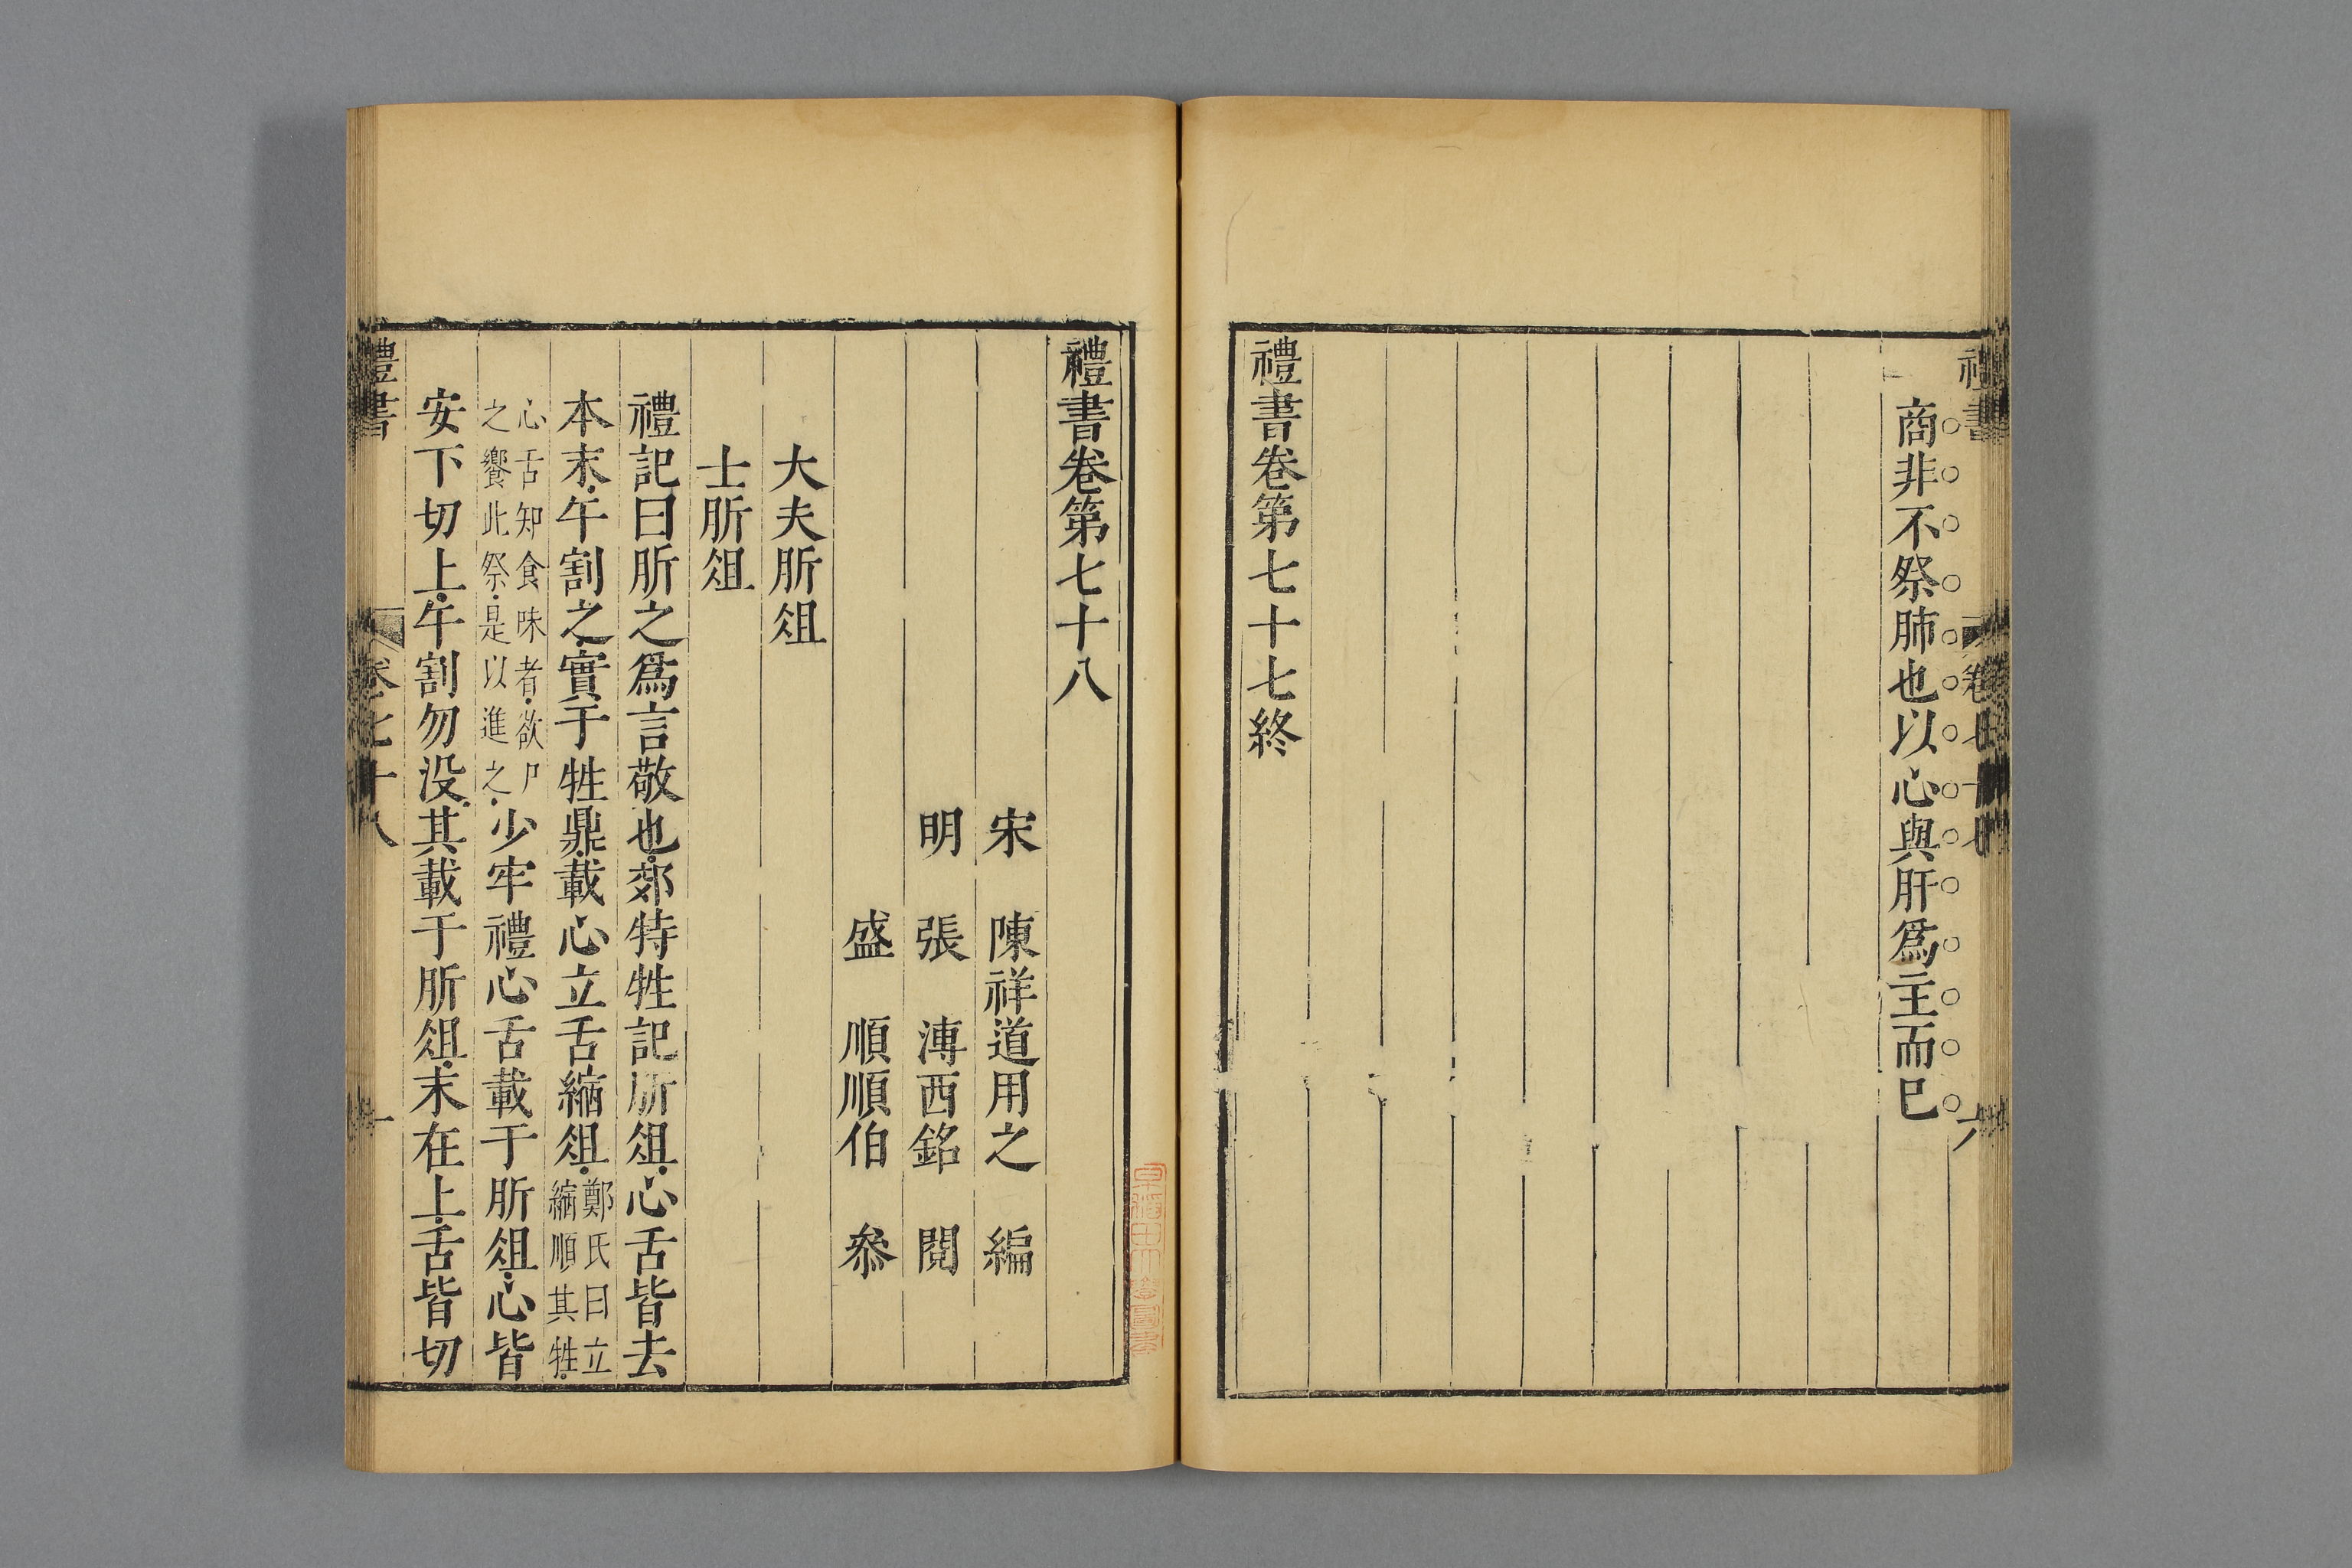 商非不祭肺也以心與肝爲主而已
禮書卷第七十七終
禮書 卷七十七 六
禮書卷第七十八
宋 陳祥道用之 編
明 張 溥西銘 閱
盛 順順伯 叅
大夫肵俎
士肵俎
禮記曰肵之爲言敬也郊特牲記肵俎心舌皆去
本末午割之實于牲鼎載心立舌縮俎鄭氏曰立
縮順其牲
心舌知食味者欲尸
之饗此祭是以進之少牢禮心舌載于肵俎心皆
安下切上午割勿没其載于肵俎末在上舌皆切
禮書 卷七十八 一
早稲田大學圖書